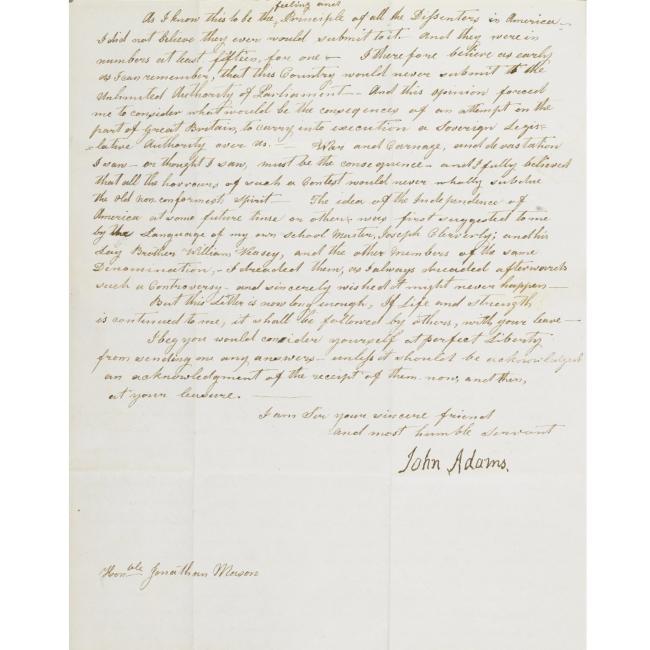 feeling and
As I know this to be the Principle of all the Dissenters in America
I did not believe they ever would submit to it. And they were in
numbers at least fifteen, for one. I therefore believe as early
as I can remember, that this Country would never submit to the
Unlimited Authority of Parliament— And this opinion forced
me to consider what would be the conseqences of an attempt on the
part of Great Britain, to carry into execution a Soverign Legis-
-lative Authority over us.— War and Carnage, and devastation
I saw— or thought I saw, must be the consequence— and I fully believed
that all the horrours of such a Contest would never wholly subdue
the old non conformest, spirit— The idea of the Independence of
America at some future time or other, was first suggested to me
by the Language of my own school Master, Joseph Cleverly; and his
Lay Brother William Veasey, and the other members of the same
Denomination,— I dreaded them, as I always dreaded afterwards
such a Controversy— and sincerely wished it might never happen—
But this Letter is now long enough, If life and strength
is continued to me, it shall be followed by others, with your leave—
I beg you would consider yourself at perfect Liberty
from sending me any answers— unless it should be
an acknowledgment of the receipt of them now, and then,
at your leasure.—
I am Sir your sincere friend
and most humble Servant
John Adams.
Honble Jonathan Mason